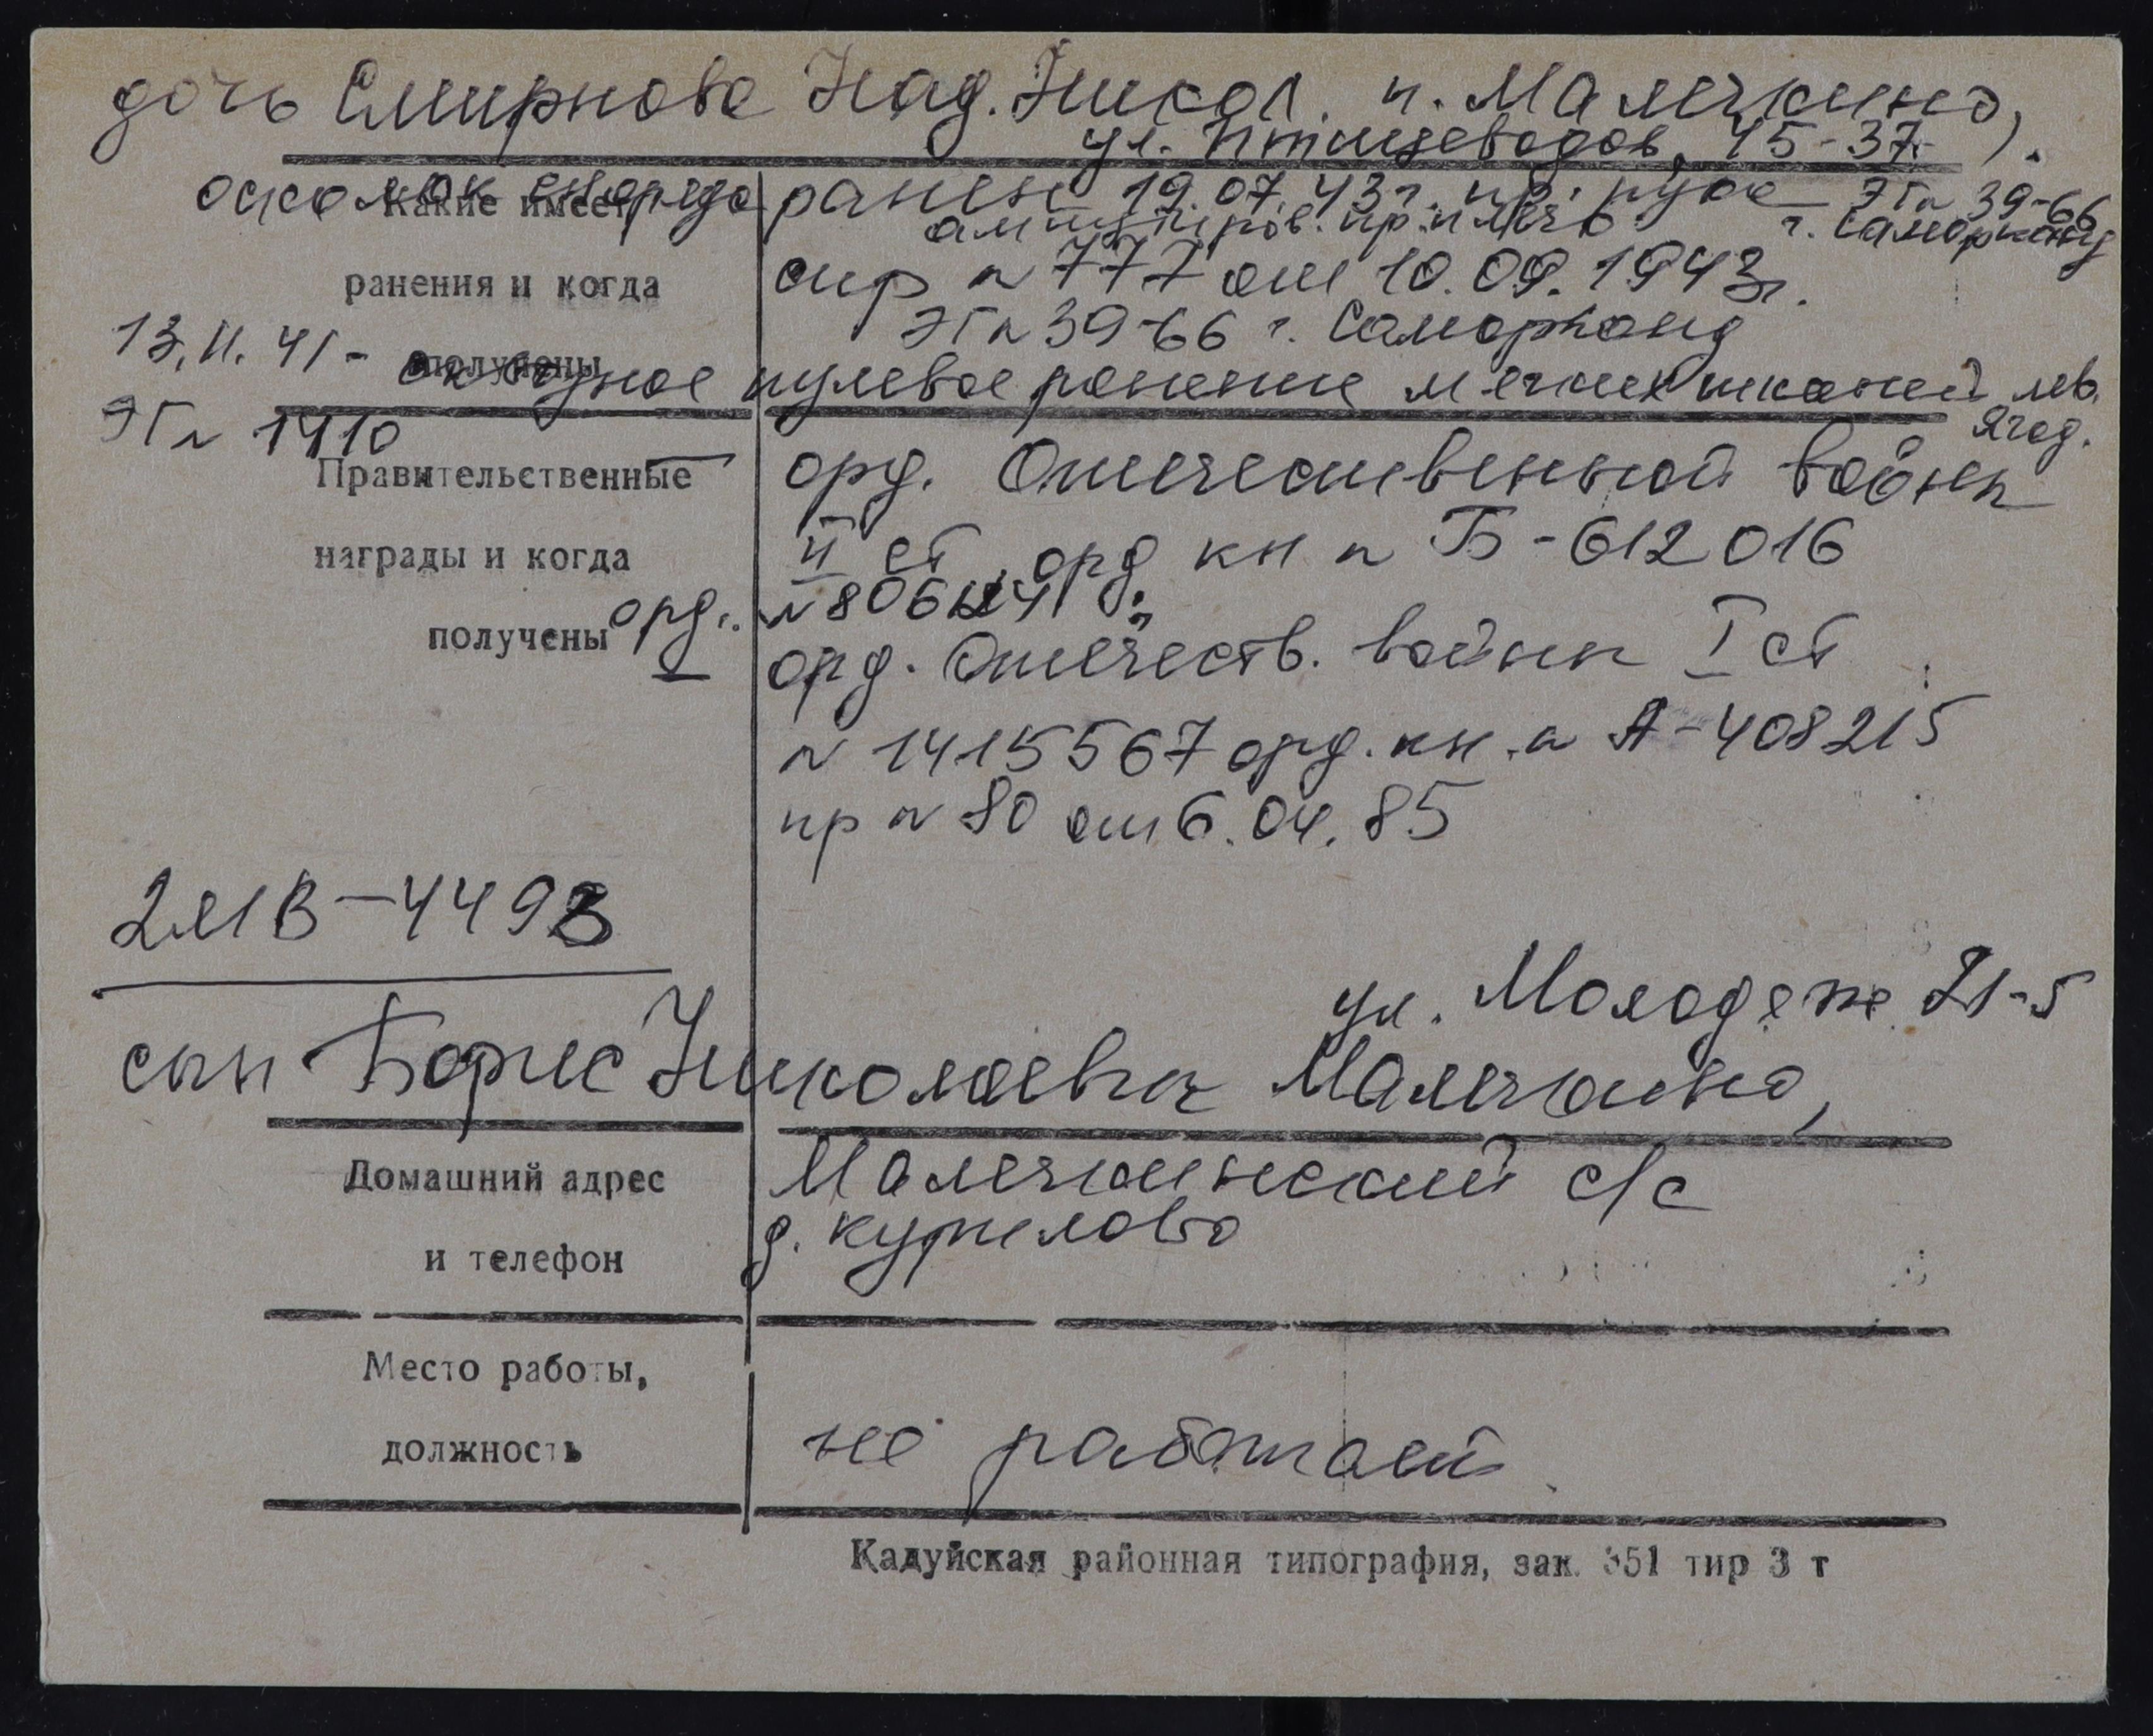 дочь Смирнова Над. Никол. п. Малечкино,
ул. Птицеводов, 15-37.
осколок снаряда ранен 19.07.43 г. пр. рука ЭГ№ 39-66
Какие имеет ампутиров. пр. плечо г. Самарканд
ранения и когда спр № 777 от 10.09.1943 г.
ЭГ№ 39-66 г. Самарканд
получены
13.11.41 - сквозное пулевое ранение мягких тканей лев.
ягод.
ЭГ№ 1410
Правительственные орд. Отечественной войны
награды и когда II ст орд кн № Б-612016
получены орд. №
орд. Отечеств. войны I ст
№ 1415567 орд. кн. № А-408215
пр № 80 от 6.04.85
2МВ-4493
ул. Молодежн 21-5
сын Борис Николаевич Малечкино,
Домашний адрес Малечкинский с/с
и телефон д. Курилово
Место работы,
должность не работает
Кадуйская районная типография, зак. 351 тир 3 т